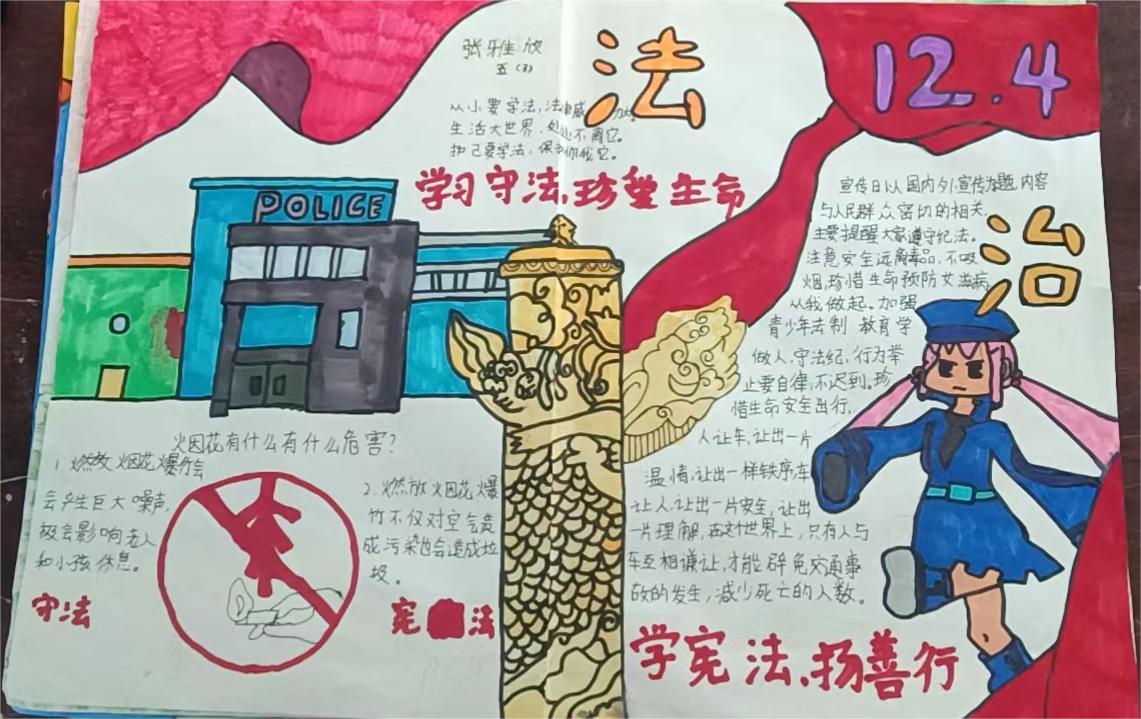 张雅欣
五（3）
法
12.4
从小要学法，法
生活大世界，处处不离它。
护己要学法，保你我它。
学习守法、珍爱生命
POLICE
宣传日以国内外宣传为题，内容
与人民群众密切的相关，
主要提醒大家遵守纪法。
注意安全远离毒品，不吸
烟，珍惜生命预防艾滋病
从我做起。加强
青少年法制 教育学
做人，守法纪，行为举
止要自律，不迟到。珍
惜生命安全出行，
人让车，让出一片
温情，让出一样铁序，车
让人，让出一片安全，让出
一片理解，在这个世界上，只有人与
车互相谦让，才能辟免交通事
故的发生，减少死亡的人数。
治
火烟花有什么有什么危害？
1 燃放烟花爆竹会
会产生巨大噪声，
极会影响老人
和小孩休息。
2.燃放火烟花爆
竹不仅对空气造
成污染也会造成垃
圾。
守法
宪法
学宪法、扬善行